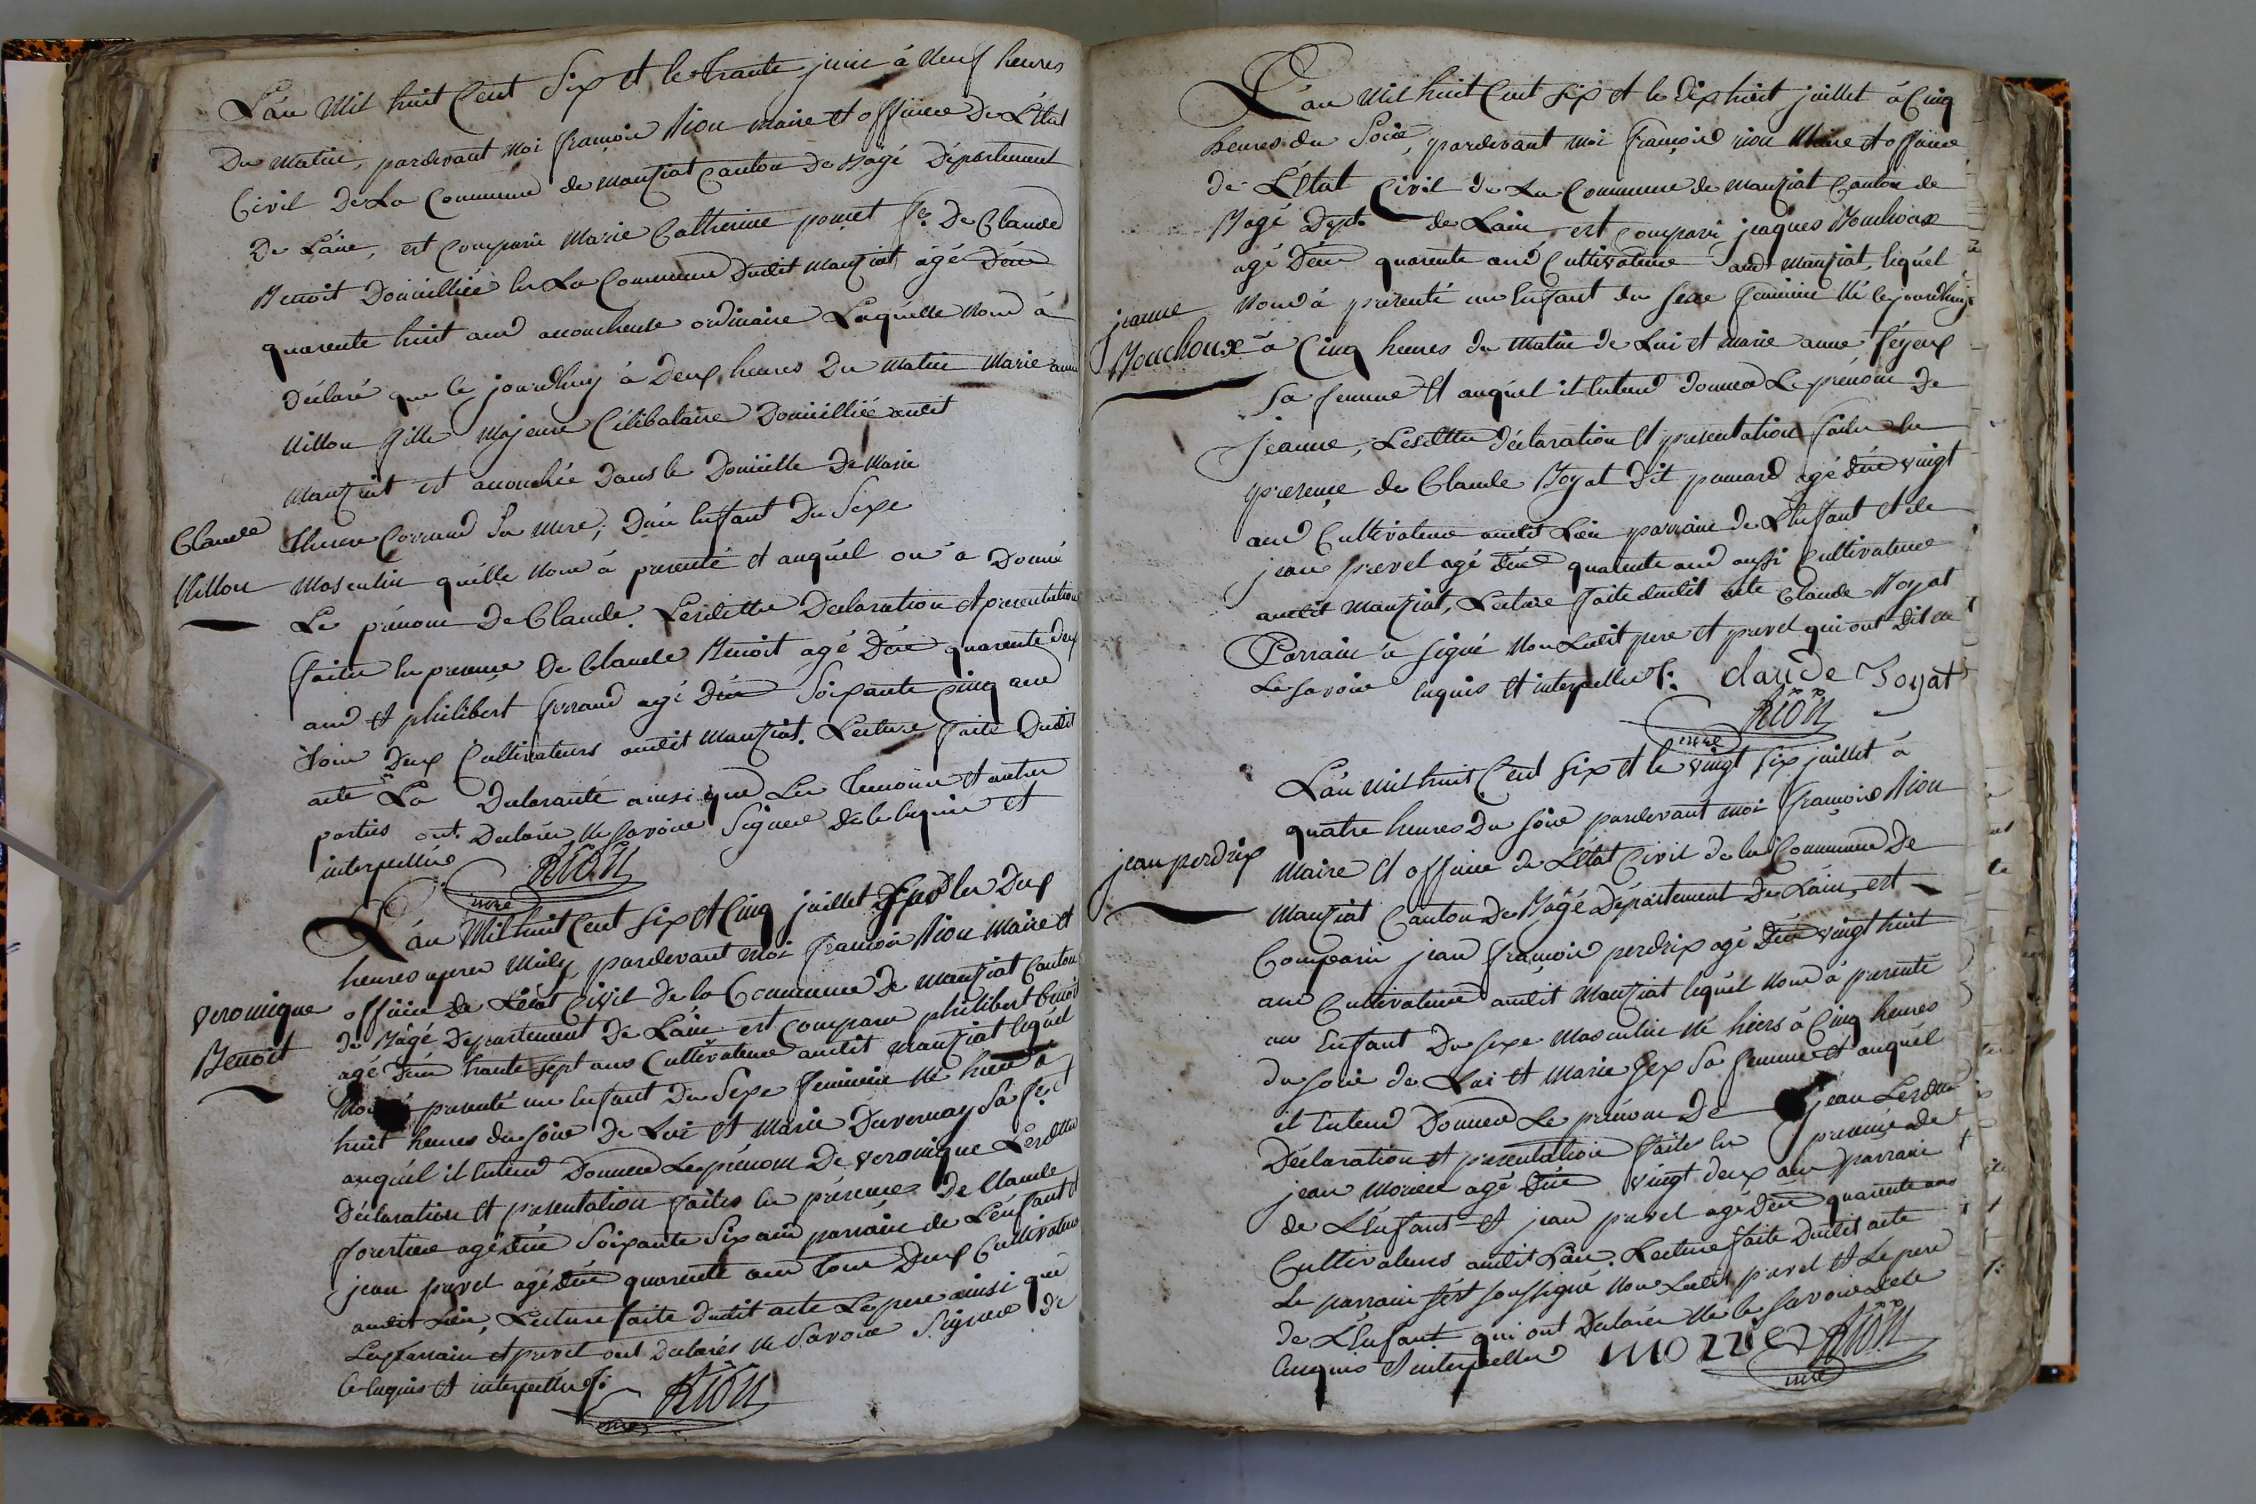 L'an Mil huit Cent Six et le trante juin à Neuf heures
Du matin, pardevant moi françois Rion maire et officier De L'Etat
Civil De La Commune de manziat Canton De Bagé Département
De L'ain, est Comparu Marie Catherine ponset fe. De Claude
Benoit Domicilliée En La Commune Dudit Manziat agé D'en
quarente huit ans acoucheuse ordinaire Laquelle Nous à
Déclaré que Ce jourdhuy à Deux heures Du Matin Marie anne
Nillon fille Majeure Célibataire Domicilliée audit
Manziat est acouchée Dans le Domicille De Marie
Claude
Nillon
Corrand Sa Mere, D'un Enfant Du Sexe
Masculin qu'elle Nous à presenté et auquel on à Donné
Le prénom De Claude. Lesdittes Declaration et presentation
faites En presence De Claude Benoit agé D'en quarente deux
ans et philibert ferrand agé D'en Soixante Cinq ans
tous Deux Cultivateurs audit Manziat. Lecture faite Dudit
acte La Declarante ainsi que Les temoins et autres
parties ont Declarés Ne Savoir Signer De Ce Enquis et
interpellés
RION
mre
L'an Mil huit Cent Six et Cinq juillet Sur les Deux
heures apres Midy, pardevant Moi françois Rion Maire et
Veronique
Benoit
officier de L'état Civil De la Commune De Manziat Canton
de Bagé Departement De L'ain est Comparu philibert Benoit
agé D'en trante Sept ans Cultivateur audit Manziat lequel
Nous à presenté un Enfant Du Sexe feminin Né hier à
huit heures du Soir De Lui et Marie Duvernay Sa fe. et
auquel il Entend Donner Le prénom De Veronique Lesdttes
Déclaration et presentation faites En présence De Claude
forestier agé D'en Soixante Six ans parrain de L'enfant et
jean prevel agé D'en quarente ans tous Deux Cultivateurs
audit Lieu, Lecture faite Dudit acte Le pere ainsi que
Le parrain et prevel ont Declarés Ne Savoir Signer De
Ce Enquis et interpellés ∫:
RION
mre
L'an Mil huit Cent Six et le Dix huit juillet à Cinq
heures du Soir, pardevant moi françois rion Maire et officier
de L'Etat Civil de La Commune de Manziat Canton de
Bagé Dept. de L'ain, est Comparu jaques Bouchoux
agé D'en quarente ans Cultivateur aud. Manziat, lequel
jeanne
Bouchoux
Nous à présenté un Enfant du Sexe feminin Né Cejourdhuy
à Cinq heures du Matin de Lui et Marie anne féyeux
Sa femme et auquel il Entend donner Le prénom De
Jeanne, Lesdittes déclaration et presentation faites En
presence de Claude Boyat Dit pomard agé D'en vingt
ans Cultivateur audit Lieu parrain de L'Enfant et de
jean prevel agé D'en quarente ans aussi Cultivateur
audit Manziat, Lecture faite dudit acte Claude Boyat
Parrain à Signé Non Ledit pere et prevel qui ont Dit ne
Le Savoir Enquis et interpellés ∫: claude Boyat
RION
mre
L'an mil huit Cent Six et le vingt Six juillet à
quatre heures Du Soir pardevant moi françois Rion
jean perdrix
Maire et officier de L'Etat Civil de La Commune De
Manziat Canton De Bâgé Département De L'ain, est
Comparu jean françois perdrix agé D'en vingt huit
ans Cultivateur audit Manziat lequel Nous à presenté
un Enfant Du Sexe Masculin Né hiers à Cinq heures
du Soir de Lui et Marie Gex Sa femme et auquel
il Entend Donner Le prénom De jean Lesdttes
Déclaration et presentation faites En presence de
jean Morier agé D'en vingt deux ans parrain
de L'Enfant et jean prevel agé D'en quarente ans
Cultivateurs audit Lieu. Lecture faite Dudit acte
Le parrain s'est soussigné Non Ledit prevel et Le pere
de L'Enfant qui ont Declarés Ne le Savoir de Ce
Enquis et interpellés MORIER RION
mre